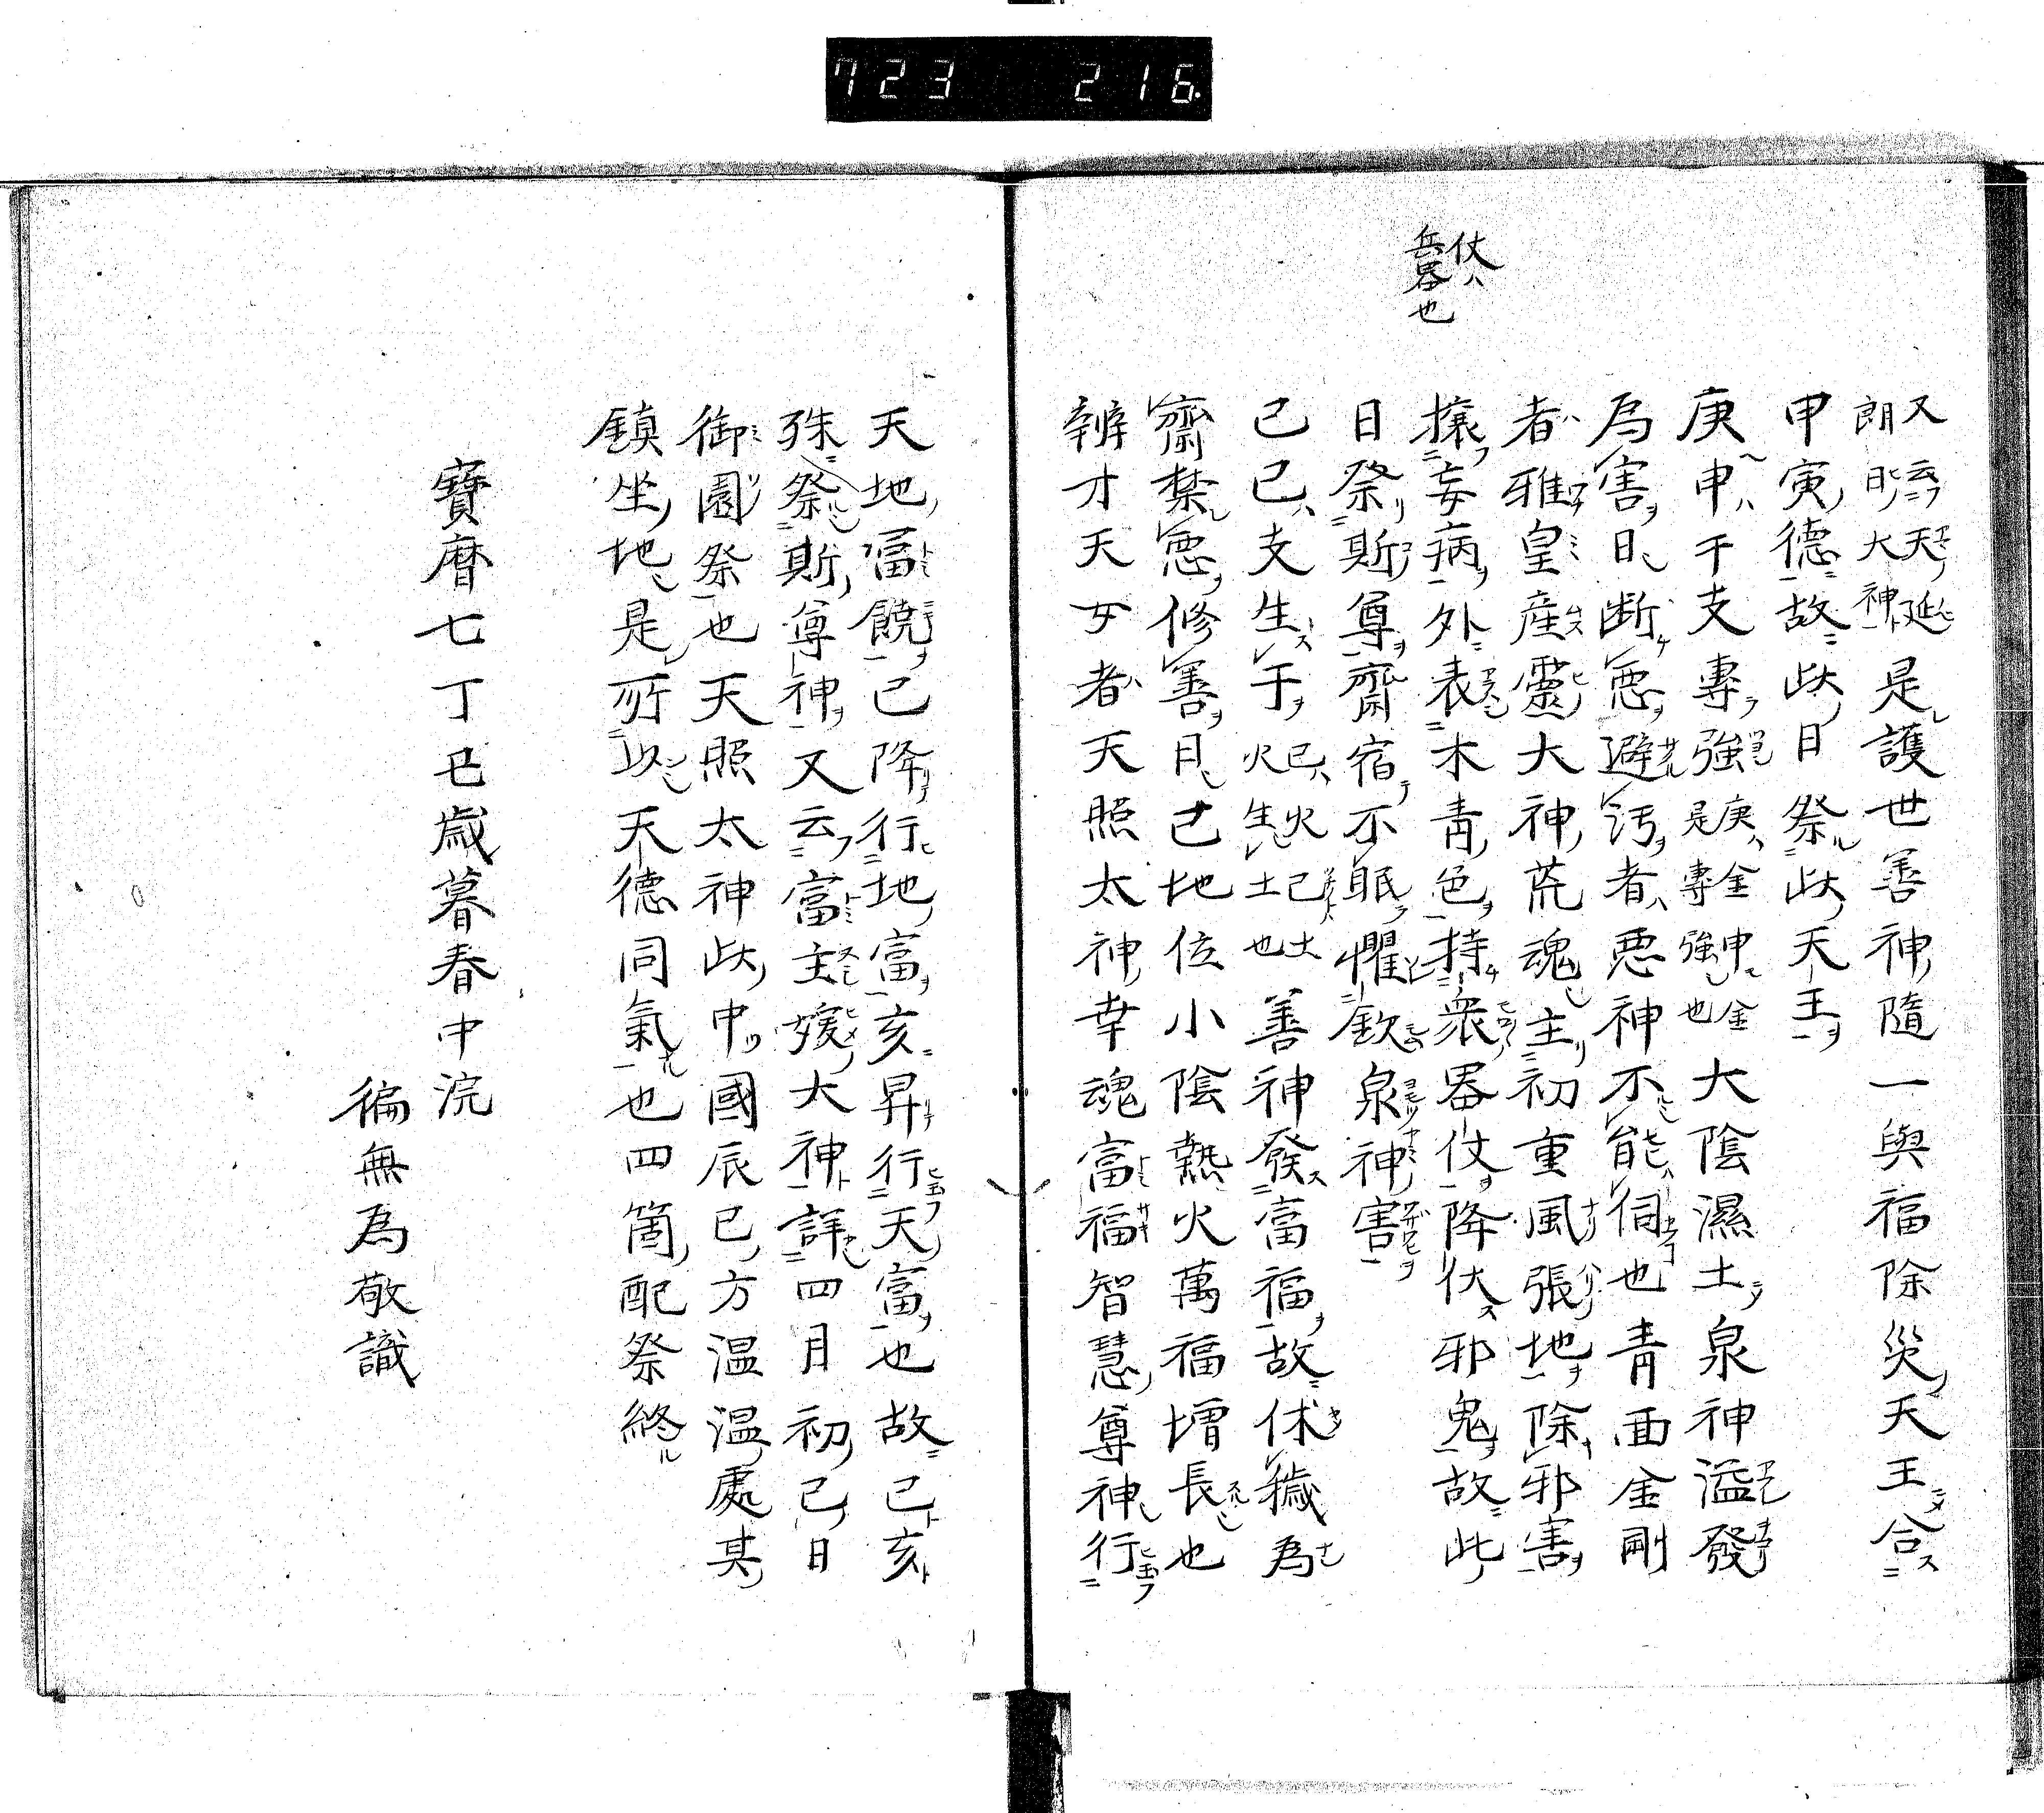 723 216.
仗ハ
兵畧也
又云天延
朗日大神是護世善神隨一與福除災天王合
甲寅德故此日祭此天王
庚申ハ干支專強庚ハ金申ハ金
是專強也大陰濕土泉神溢發
為害日断惡避汚者ハ惡神不能伺也青面金剛
者ハ雅皇産靈大神荒魂主初重風張地除邪害
攘妄病外表木青色持衆畧仗降伏邪鬼故此
日祭斯尊齋宿不眠懼欽泉神害
己巳ハ支生于巳ハ火己ハ土
火生土也善神發富福故休穢為
齋禁惡修善日己地位小陰熱火萬福増長也
辨才天女者ハ天照太神幸魂富福智慧尊神行
天地富饒己降行地富亥昇行天富也故己亥
殊祭斯尊神又云富主媛大神詳四月初巳日
御園祭也天照太神此中國辰巳方温温處其
鎮坐地是所以天德同氣也四箇配祭終
寶暦七丁丑歳暮春中浣
徧無為敬識